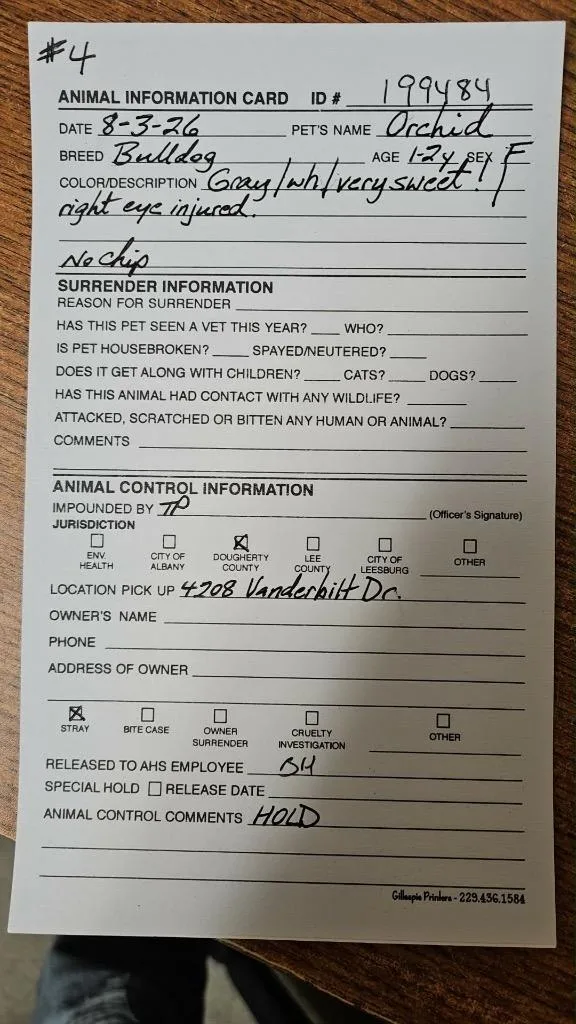 #4
ANIMAL INFORMATION CARD ID # 199484
DATE 8-3-26 PET'S NAME Orchid
BREED Bulldog AGE 1-2y SEX F
COLOR/DESCRIPTION Gray/wh/very sweet!
right eye injured.
No chip
SURRENDER INFORMATION
REASON FOR SURRENDER
HAS THIS PET SEEN A VET THIS YEAR? WHO?
IS PET HOUSEBROKEN? SPAYED/NEUTERED?
DOES IT GET ALONG WITH CHILDREN? CATS? DOGS?
HAS THIS ANIMAL HAD CONTACT WITH ANY WILDLIFE?
ATTACKED, SCRATCHED OR BITTEN ANY HUMAN OR ANIMAL?
COMMENTS
ANIMAL CONTROL INFORMATION
IMPOUNDED BY TP (Officer's Signature)
JURISDICTION
ENV. HEALTH CITY OF ALBANY DOUGHERTY COUNTY LEE COUNTY CITY OF LEESBURG OTHER
LOCATION PICK UP 4208 Vanderbilt Dr.
OWNER'S NAME
PHONE
ADDRESS OF OWNER
STRAY BITE CASE OWNER SURRENDER CRUELTY INVESTIGATION OTHER
RELEASED TO AHS EMPLOYEE BH
SPECIAL HOLD RELEASE DATE
ANIMAL CONTROL COMMENTS HOLD
Gillespie Printers - 229.436.1584